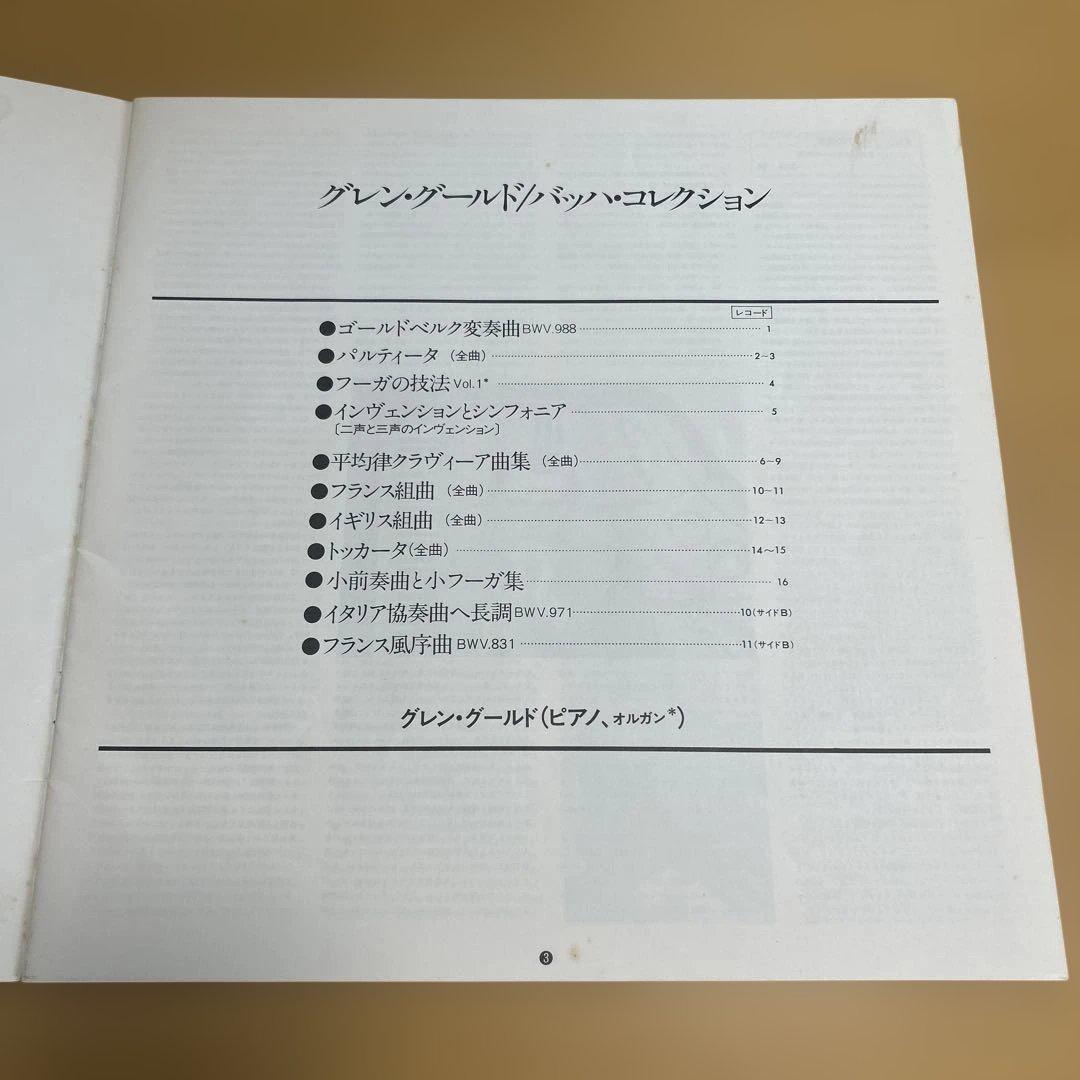 グレン・グールド/バッハ・コレクション
レコード
●ゴールドベルク変奏曲BWV.988 1
●パルティータ（全曲） 2~3
●フーガの技法Vol.1* 4
●インヴェンションとシンフォニア 5
〔二声と三声のインヴェンション〕
●平均律クラヴィーア曲集（全曲） 6~9
●フランス組曲（全曲） 10~11
●イギリス組曲（全曲） 12~13
●トッカータ(全曲) 14~15
●小前奏曲と小フーガ集 16
●イタリア協奏曲ヘ長調BWV.971 10(サイドB)
●フランス風序曲BWV.831 11(サイドB)
グレン・グールド(ピアノ、オルガン*)
3